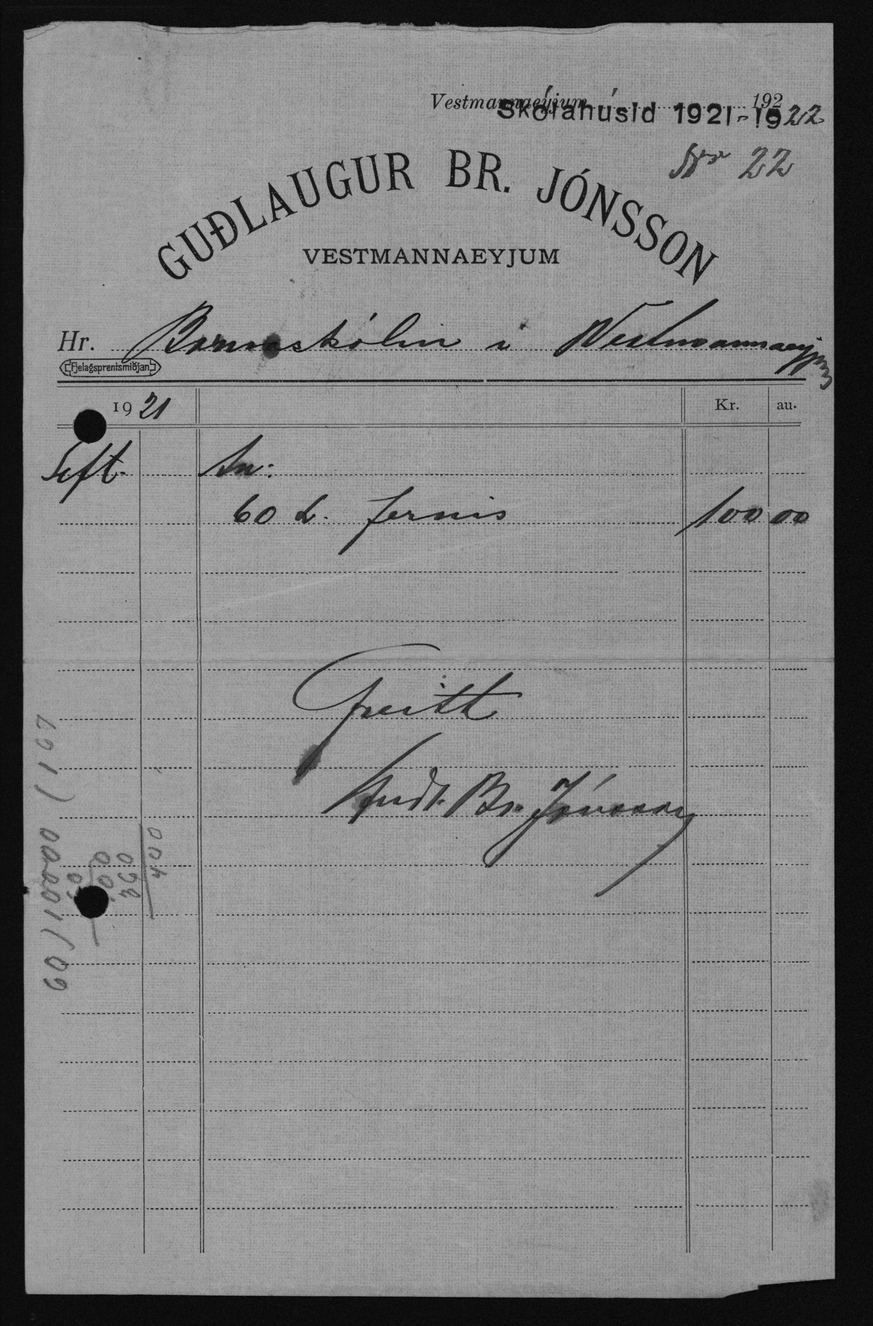 Vestmannaeyjum, 192
Skólahúsid 1921-1922
No 22
GUÐLAUGUR BR. JÓNSSON
VESTMANNAEYJUM
Hr. Barnaskólin í Vestmannaeyjum
Fjelagsprentsmiðjan
1921 Kr. au.
Sept. An:
60 l. fernis 100 00
Greitt
Guðl. Br. Jónsson